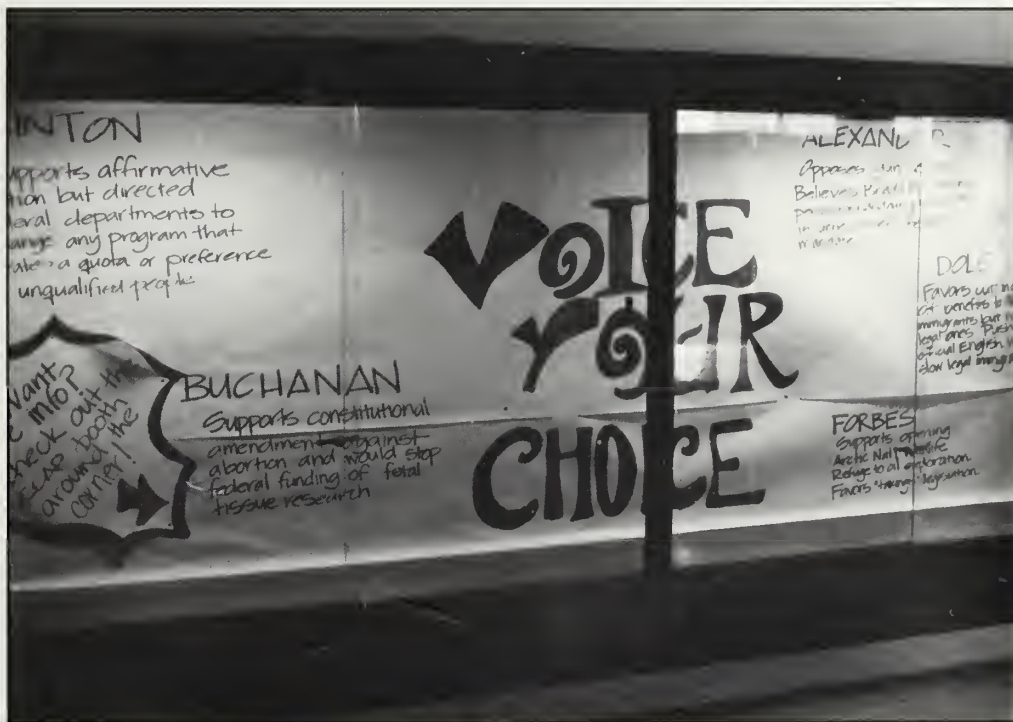 INTON
pports affirmative
tion but directed
eral departments to
any program that
a quota or preference
unqualified people
Want
info?
check out the
booth
around the
corner!
BUCHANAN
Supports constitutional
amendment against
abortion and would stop
federal funding of fetal
tissue research
VOICE
YOUR
CHOICE
ALEXAND
Opposes
Believes
DOLE
Favors
of benefits to
immigrants but
legal ones. Push
official English
slow legal immig
FORBES
Supports opening
Arctic Natl Wildlife
Refuge to oil exploration
Favors "takings" legislation